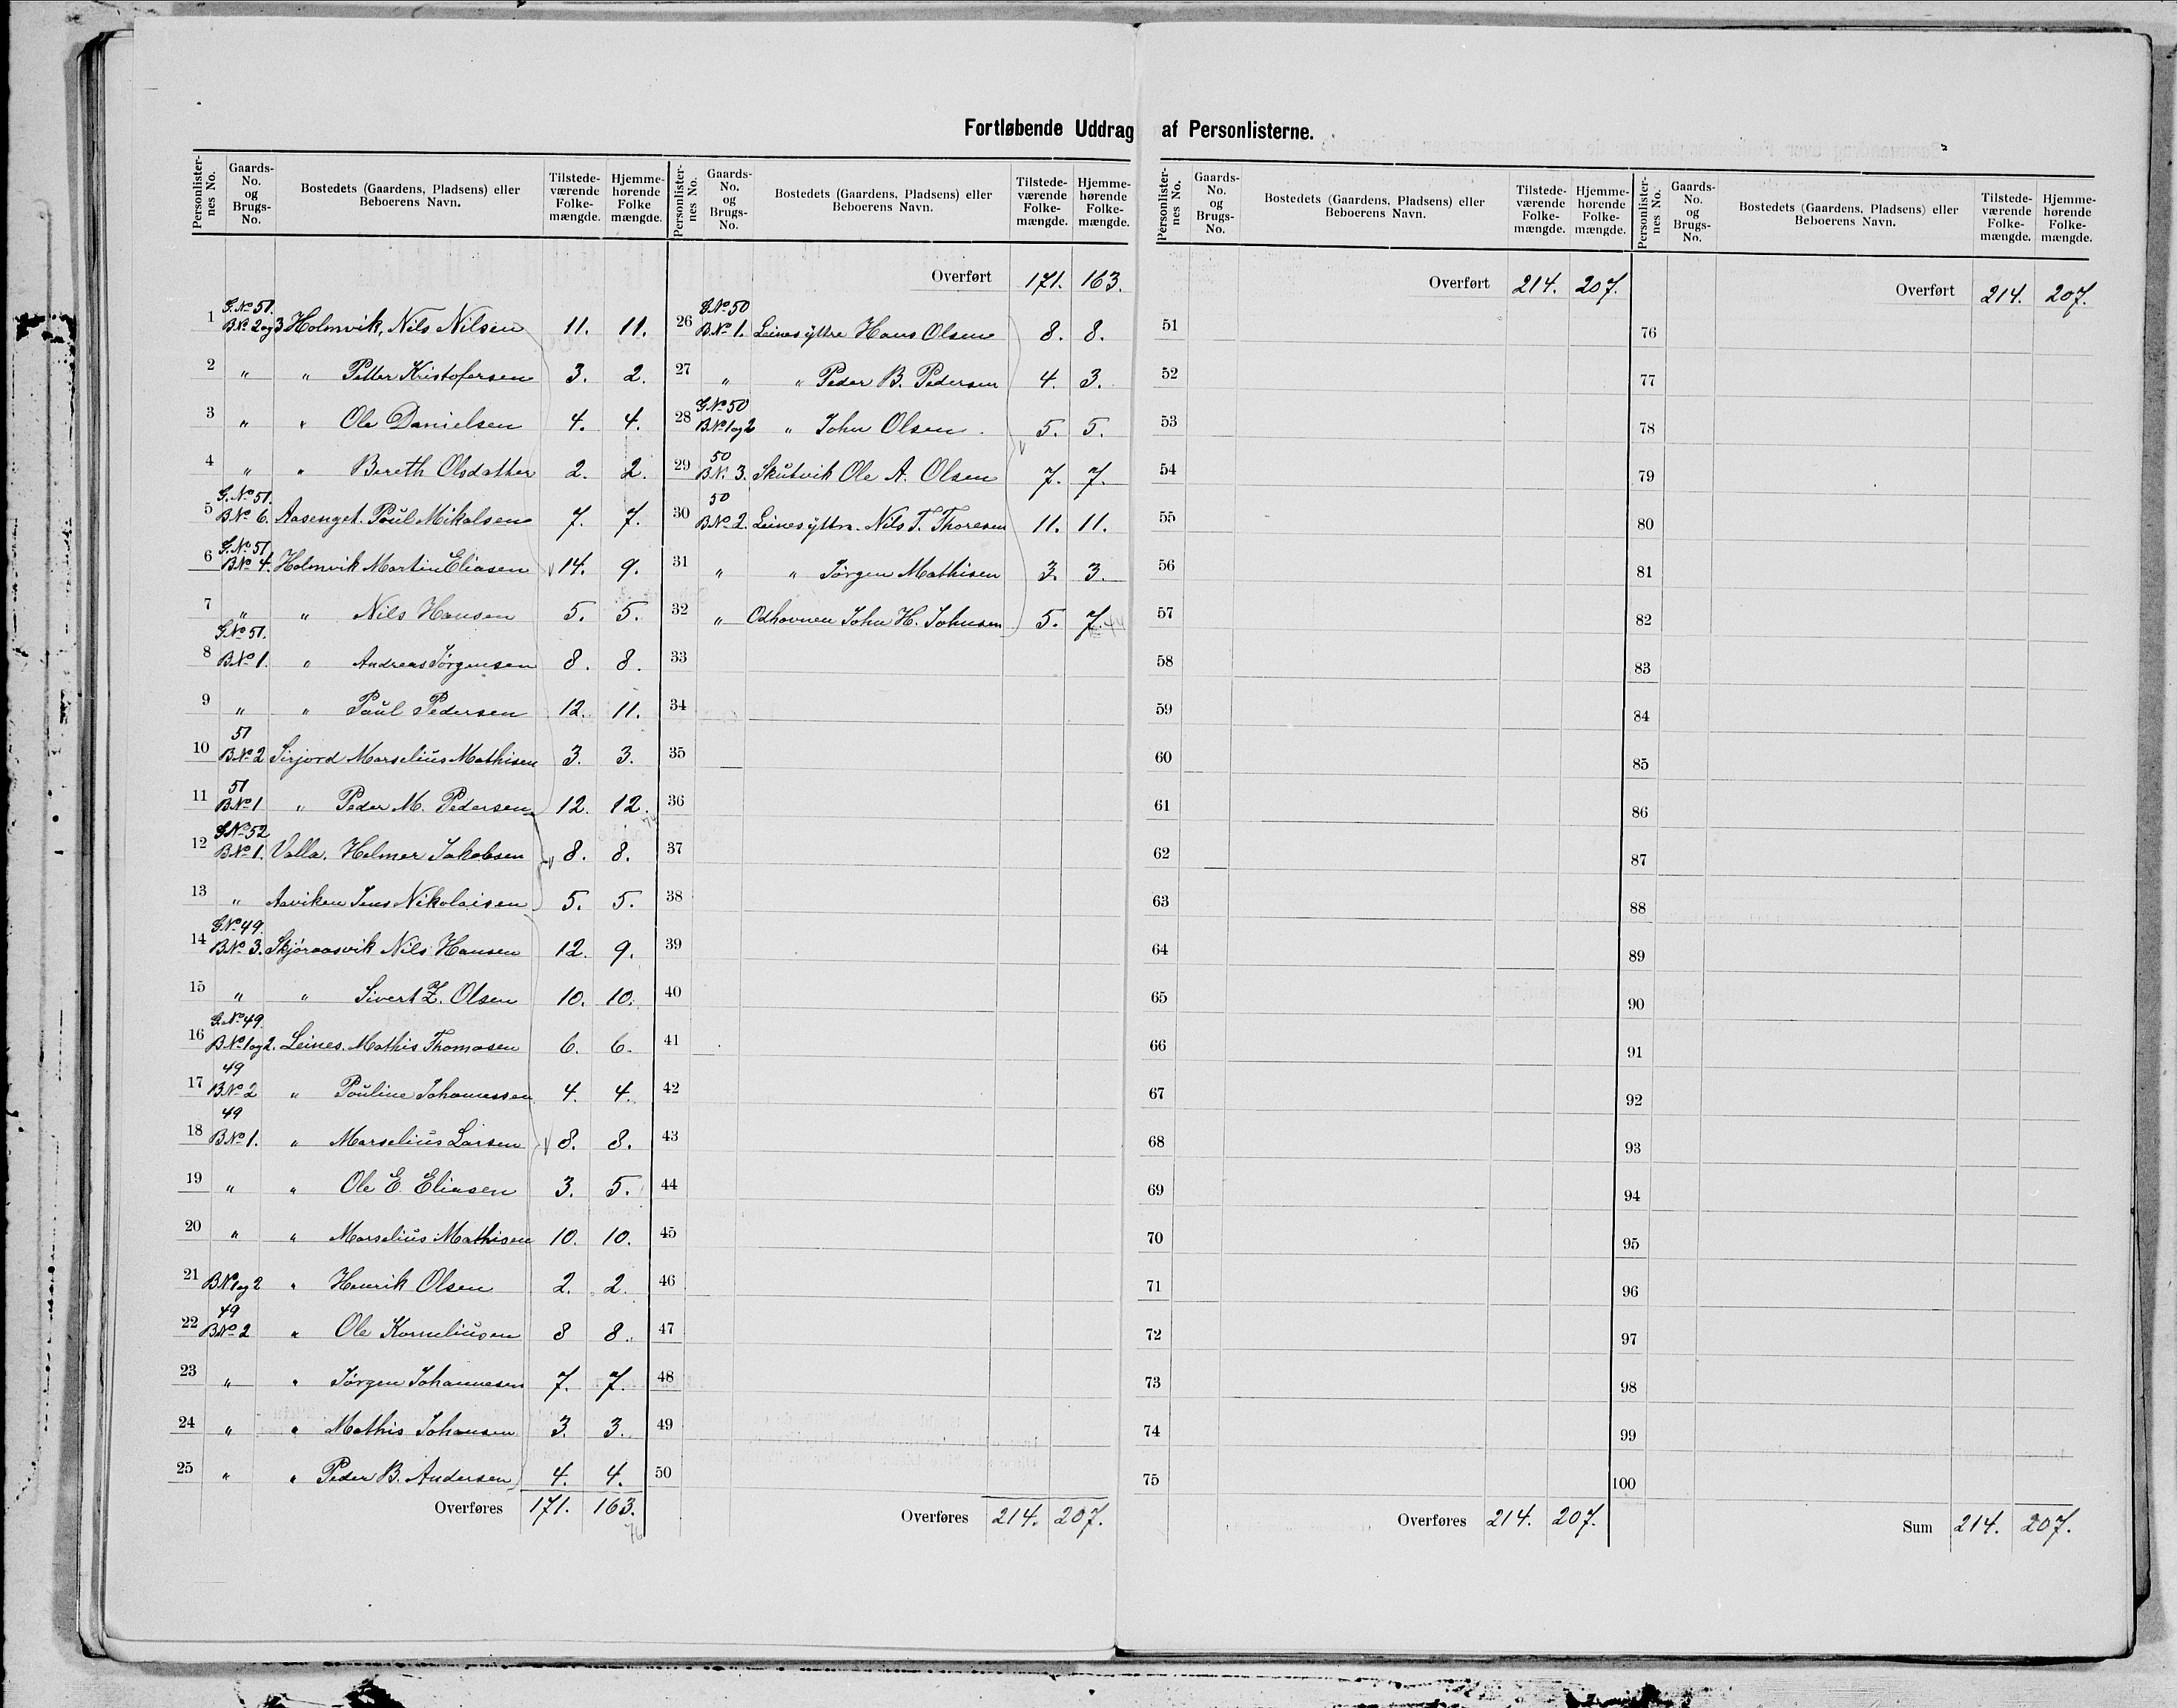 Fortløbende Uddrag af Personlisterne.
Personlisternes No. Gaards-No. og Brugs-No. Bostedets (Gaardens, Pladsens) eller Beboerens Navn. Tilstedeværende Folkemængde. Hjemmehørende Folke mængde.
1 G.No 51. B.No 2 og 3 Holmvik, Nils Nilsen 11. 11.
2 " " Petter Kristofersen 3. 2.
3 " " Ole Danielsen 4. 4.
4 " " Bereth Olsdatter 2. 2.
5 G.No 51. B.No 6. Aasenget. Poul Mikalsen 7. 7.
6 G.No 51 B.No 4. Holmvik Martin Eliasen 14. 9.
7 " " Nils Hansen 5. 5.
8 G.No 51. B.No 1. " Andreas Jørgensen 8. 8.
9 " " Paul Pedersen 12. 11.
10 51 B.No 2 Sirjord Marselius Mathisen 3. 3.
11 51 B.No 1 " Peder M. Pedersen 12. 12.
12 G.No 52 B.No 1. Valla. Helmer Jakobsen 8. 8.
13 " Aaviken Jens Nikolaisen 5. 5.
14 G.No 49. B.No 3. Skjøraasvik Nils Hansen 12. 9.
15 " " Sivert Z. Olsen 10. 10.
16 G.No 49. B.No 1 og 2. Leines. Mathis Thomasen 6. 6.
17 49 B.No 2 " Pouline Johannessen 4. 4.
18 49 B.No 1. " Marselius Larsen 8. 8.
19 " " Ole E. Eliasen 3. 5.
20 " " Marselius Mathisen 10. 10.
21 B.No 1 og 2 " Henrik Olsen 2. 2.
22 49 B.No 2 " Ole Korneliusen 8 8.
23 " " Jørgen Johannesen 7. 7.
24 " " Mathis Johansen 3. 3.
25 " " Peder B. Andersen 4. 4.
Overføres 171. 163.
76
Personlisternes No. Gaards-No. og Brugs-No. Bostedets (Gaardens, Pladsens) eller Beboerens Navn. Tilstedeværende Folkemængde. Hjemmehørende Folkemængde.
Overført 171. 163.
26 G.No 50 B.No 1. Leines yttre Hans Olsen 8. 8.
27 " " Peder B. Pedersen 4. 3.
28 G.No 50 B.No 1 og 2 " John Olsen 5. 5.
29 50 B.No 3. Skutvik Ole A. Olsen 7. 7.
30 50 B.No 2. Leines yttre. Nils T. Thoresen 11. 11.
31 " " Jørgen Mathisen 3. 3.
32 " Odhavnen John H. Johnsen 5. 7.
33
34
35
36
37
38
39
40
41
42
43
44
45
46
47
48
49
50
Overføres 214. 207.
Personlisternes No. Gaards-No. og Brugs-No. Bostedets (Gaardens, Pladsens) eller Beboerens Navn. Tilstedeværende Folkemængde. Hjemmehørende Folkemængde.
Overført 214. 207.
51
52
53
54
55
56
57
58
59
60
61
62
63
64
65
66
67
68
69
70
71
72
73
74
75
Overføres 214. 207.
Personlisternes No. Gaards-No. og Brugs-No. Bostedets (Gaardens, Pladsens) eller Beboerens Navn. Tilstedeværende Folkemængde. Hjemmehørende Folkemængde.
Overført 214. 207.
76
77
78
79
80
81
82
83
84
85
86
87
88
89
90
91
92
93
94
95
96
97
98
99
100
Sum 214. 207.